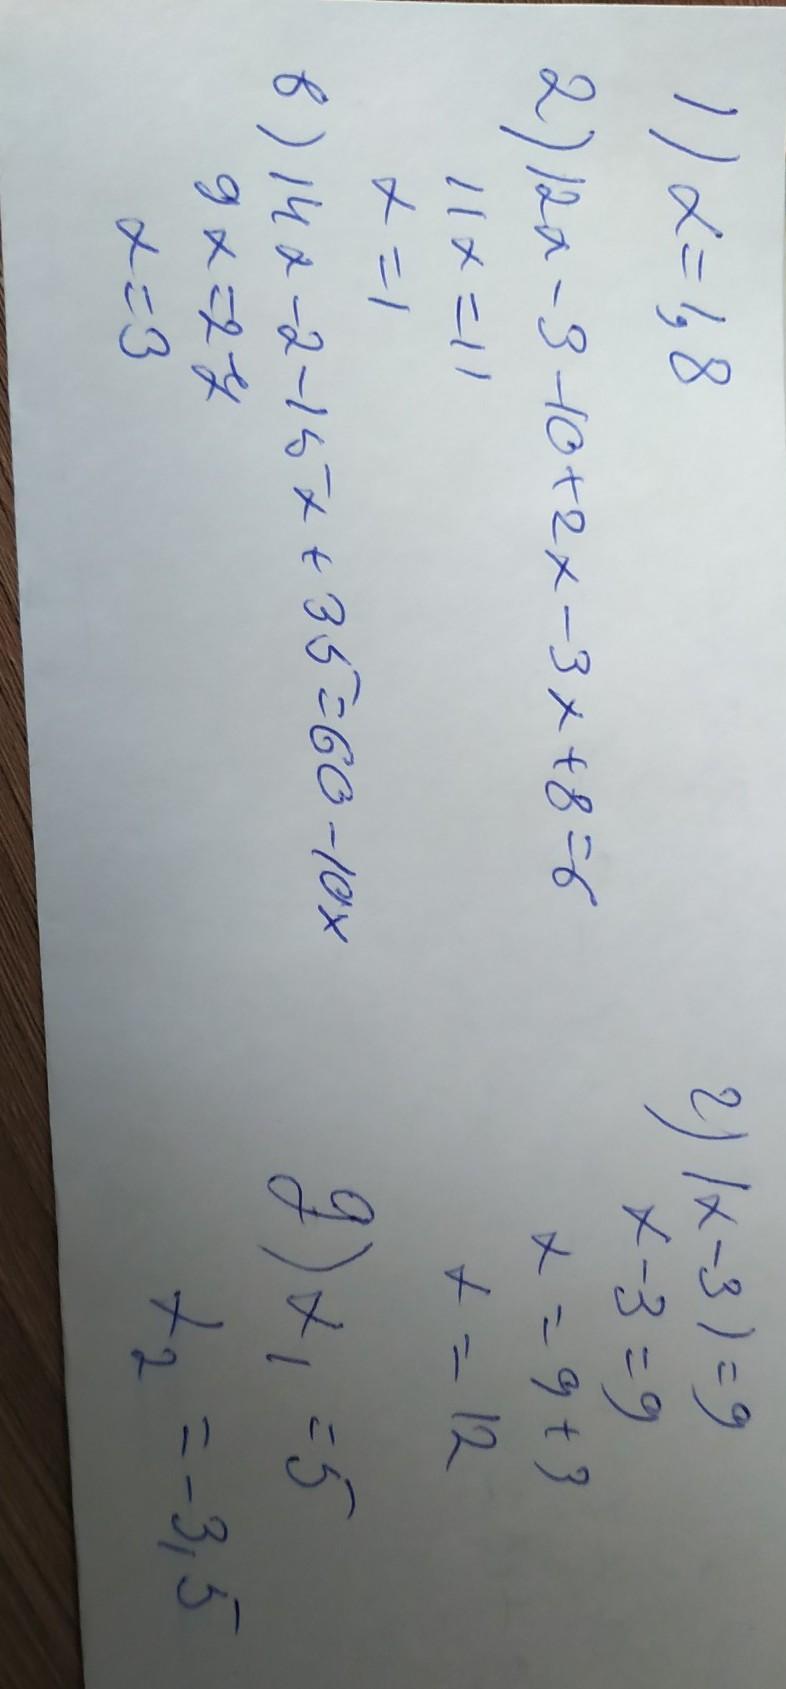 1) x = 1,8
2) 12x - 3 - 10 + 2x - 3x + 8 = 6
11x = 11
x = 1
в) 14x - 2 - 15x + 35 = 60 - 10x
9x = 27
x = 3
г) |x - 3) = 9
x - 3 = 9
x = 9 + 3
x = 12
д) x₁ = 5
x₂ = -3,5